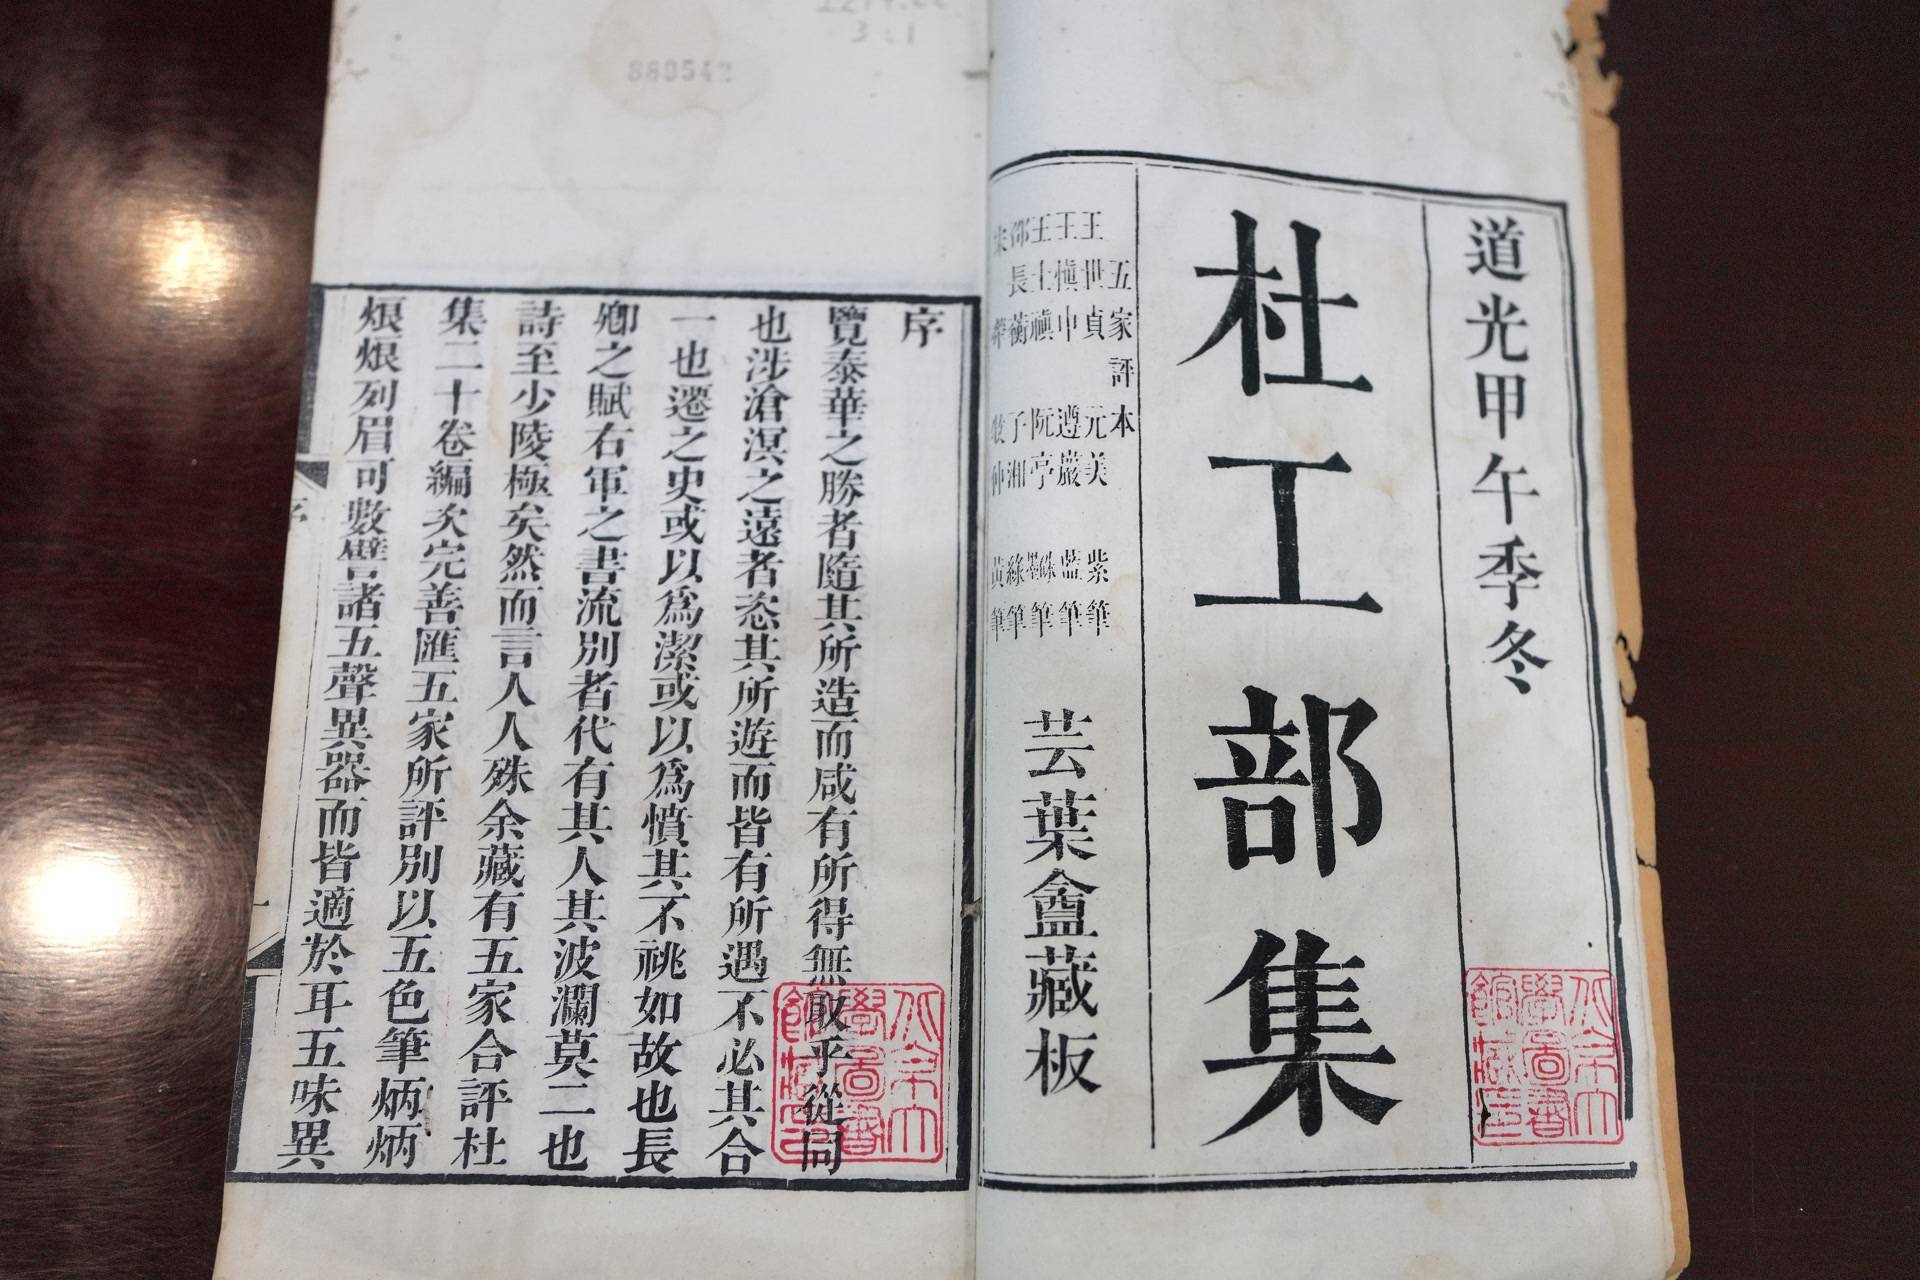 道光甲午季冬
杜工部集
五家評本
王世貞元美 紫筆
王慎中遵巖 藍筆
王士禛阮亭 硃筆墨筆
邵長蘅子湘 綠筆
宋犖牧仲 黃筆
芸葉盦藏板
序
覽泰華之勝者隨其所造而咸有所得無取乎從同
也涉滄溟之遠者恣其所遊而皆有所遇不必其合
一也遷之史或以為潔或以為憤其不祧如故也長
卿之賦右軍之書流別者代有其人其波瀾莫二也
詩至少陵極矣然而言人人殊余藏有五家合評杜
集二十卷編次完善匯五家所評別以五色筆炳炳
烺烺列眉可數譬諸五聲異器而皆適於耳五味異
序
一
889542
3:1